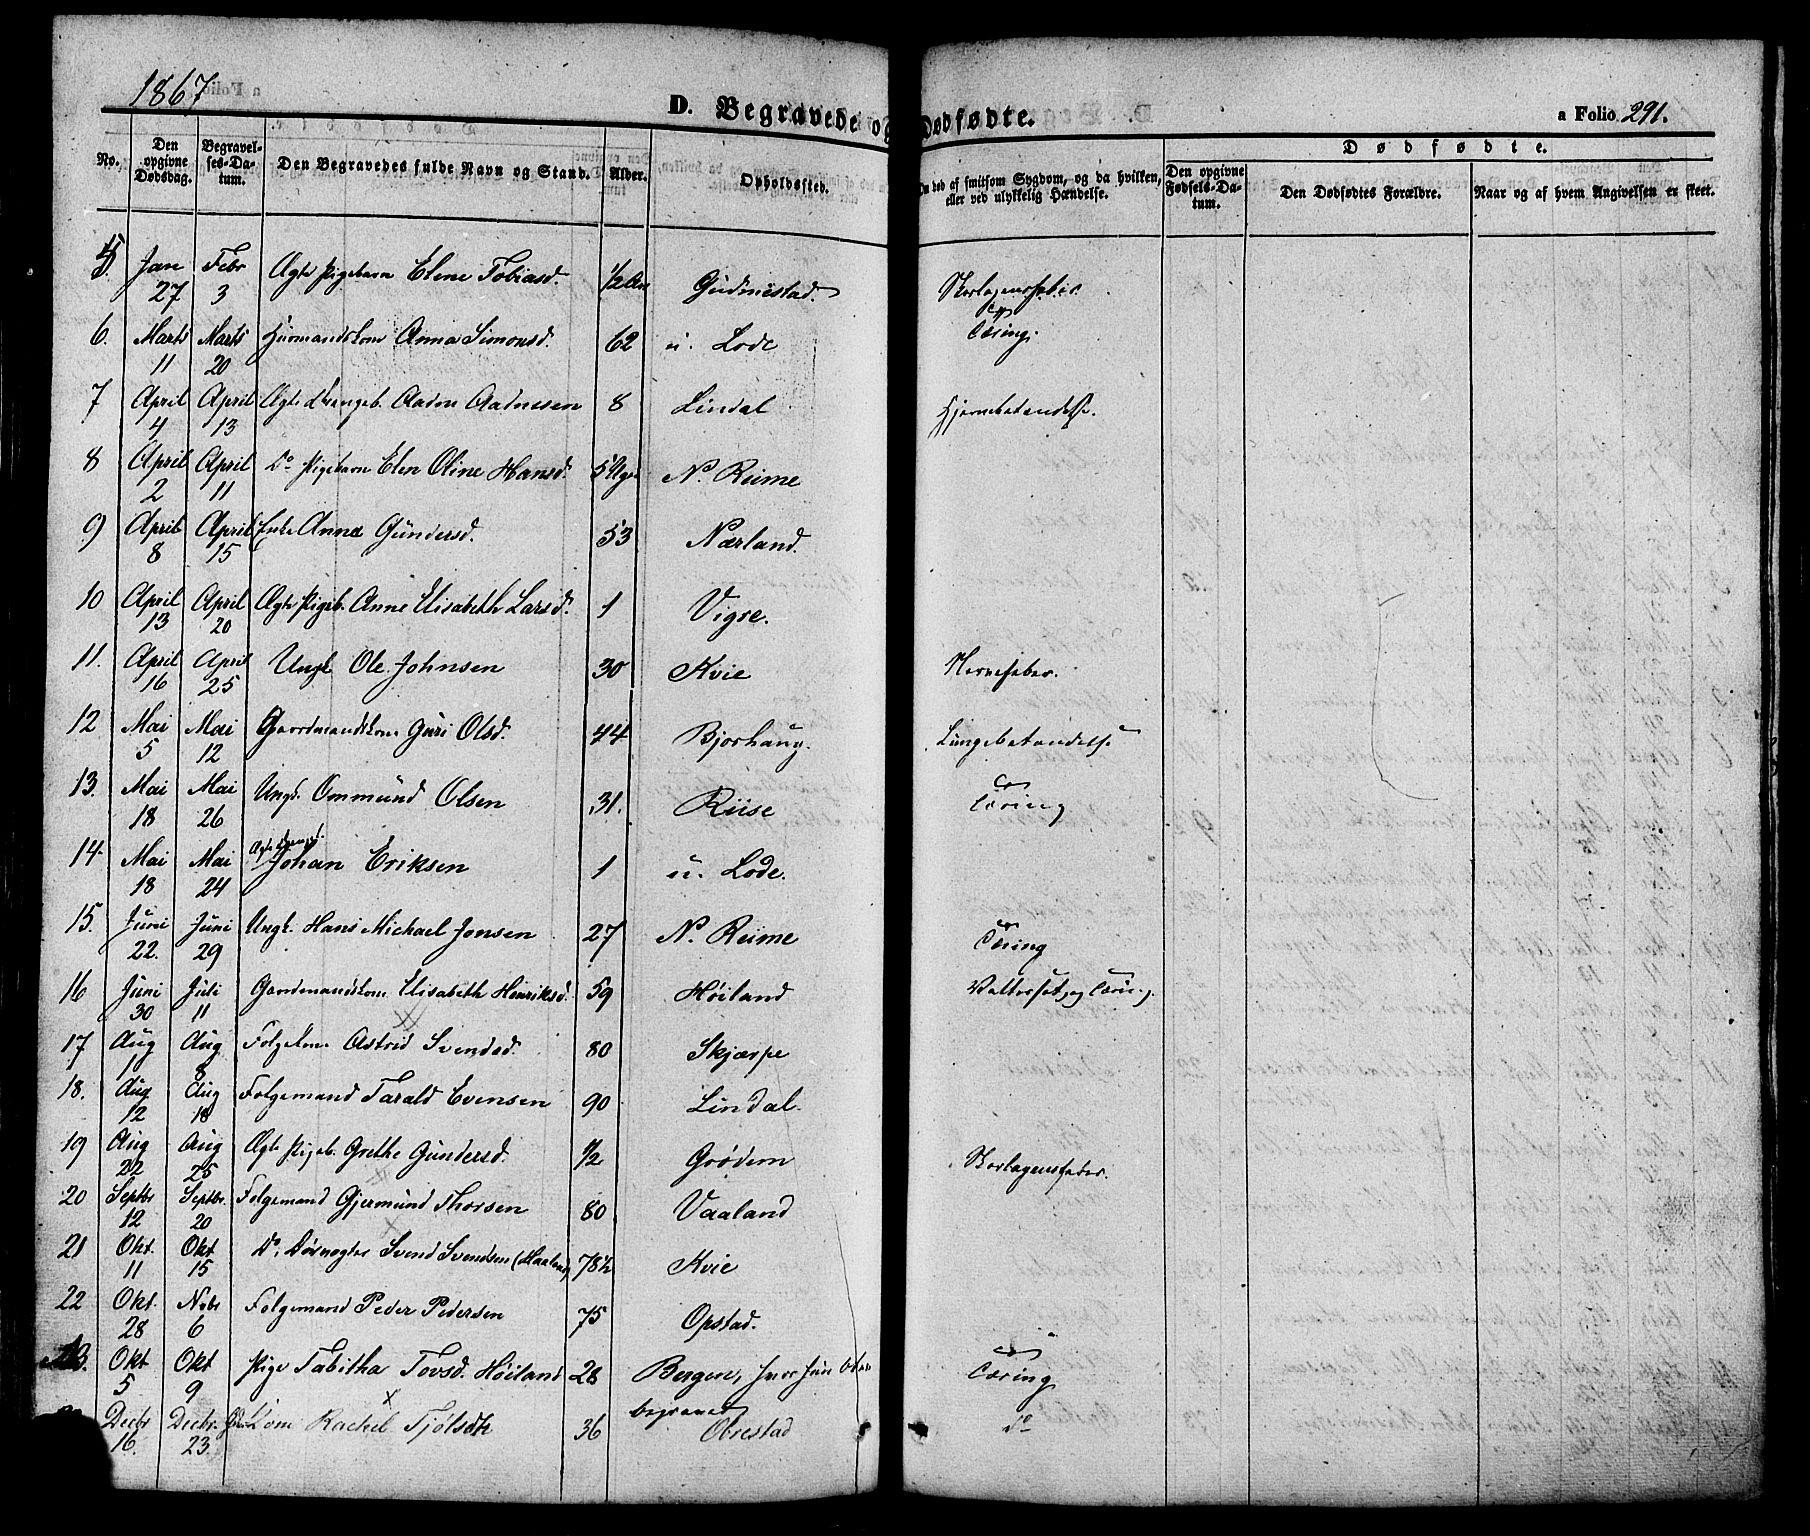 1867
D. Begravede og Dødfødte.
a Folio 291.
No. | Den opgivne Dødsdag. | Begravelses-Datum. | Den Begravedes fulde Navn og Stand. | Alder. | Opholdssted. | Om død af smitsom Sygdom, og da hvilken, eller ved ulykkelig Hændelse. | Dødfødte. | Den opgivne Fødsels-Datum. | Den Dødfødtes Forældre. | Naar og af hvem Angivelsen er skeet.
5. Jan 27 Febr 3 Ægte Pigebarn Elene Tobiasd. 1/2 Aar Gudmestad. Skarlagensfeber
6. Marts 11 Marts 20 Huusmandskone Anna Simonsd. 62 u. Lode Tæring
7 April 4 April 13 Ægte Drengeb. Aadne Aadnesen 8 Lindal Hjernebetændelse.
8 April 2 April 11 Do Pigebarn Elen Oline Hansd. 5 Uger N. Reime
9 April 8 April 15 Enke Anna Gundersd. 53 Nærland.
10 April 13 April 20 Ægte Pigeb. Anne Elisabeth Larsd. 1 Vigre.
11. April 16 April 25 Ungk. Ole Johnsen 30 Kvie Nervefeber.
12 Mai 5 Mai 12 Gaardmandskone Guri Olsd. 44 Bjorhaug. Lungebetændelse
13. Mai 18 Mai 26 Ungk. Ommund Olsen 31. Riise Tæring
14. Mai 18 Mai 24 Ægte Drengeb. Johan Eriksen 1 u. Lode.
15. Juni 22. Juni 29 Ungk. Hans Michael Jonsen 27 N. Reime Tæring
16 Juni 30 Juli 11 Gaardmandskone Elisabeth Henriksd. 59 Høiland Vattersot og Tæring.
17 Aug 1 Aug 8 Folgekone Astrid Svendsd. 80 Skjærpe
18. Aug 12 Aug 18 Folgemand Tarald Evensen 90 Lindal.
19 Aug 22 Aug 25 Ægte Pigeb. Grethe Gundersd. 1/2 Grødem Skarlagensfeber.
20 Septbr 12 Septbr. 20 Folgemand Gjermund Thorsen 80 Vaaland
21 Okt 11 Okt 15 Do, Svend Svendsen (Haaland) 78 1/2 Kvie
22 Okt. 28 Nvbr 6 Folgemand Peder Pedersen 75 Opstad.
23. Okt 5 Okt 9 Pige Tabitha Tovsd. Høiland 28 Bergen, hvor hun blev begravet Tæring
Decbr 16. Decbr. 23. Kone Rachel Tjølsdtr 36 Obrestad Do